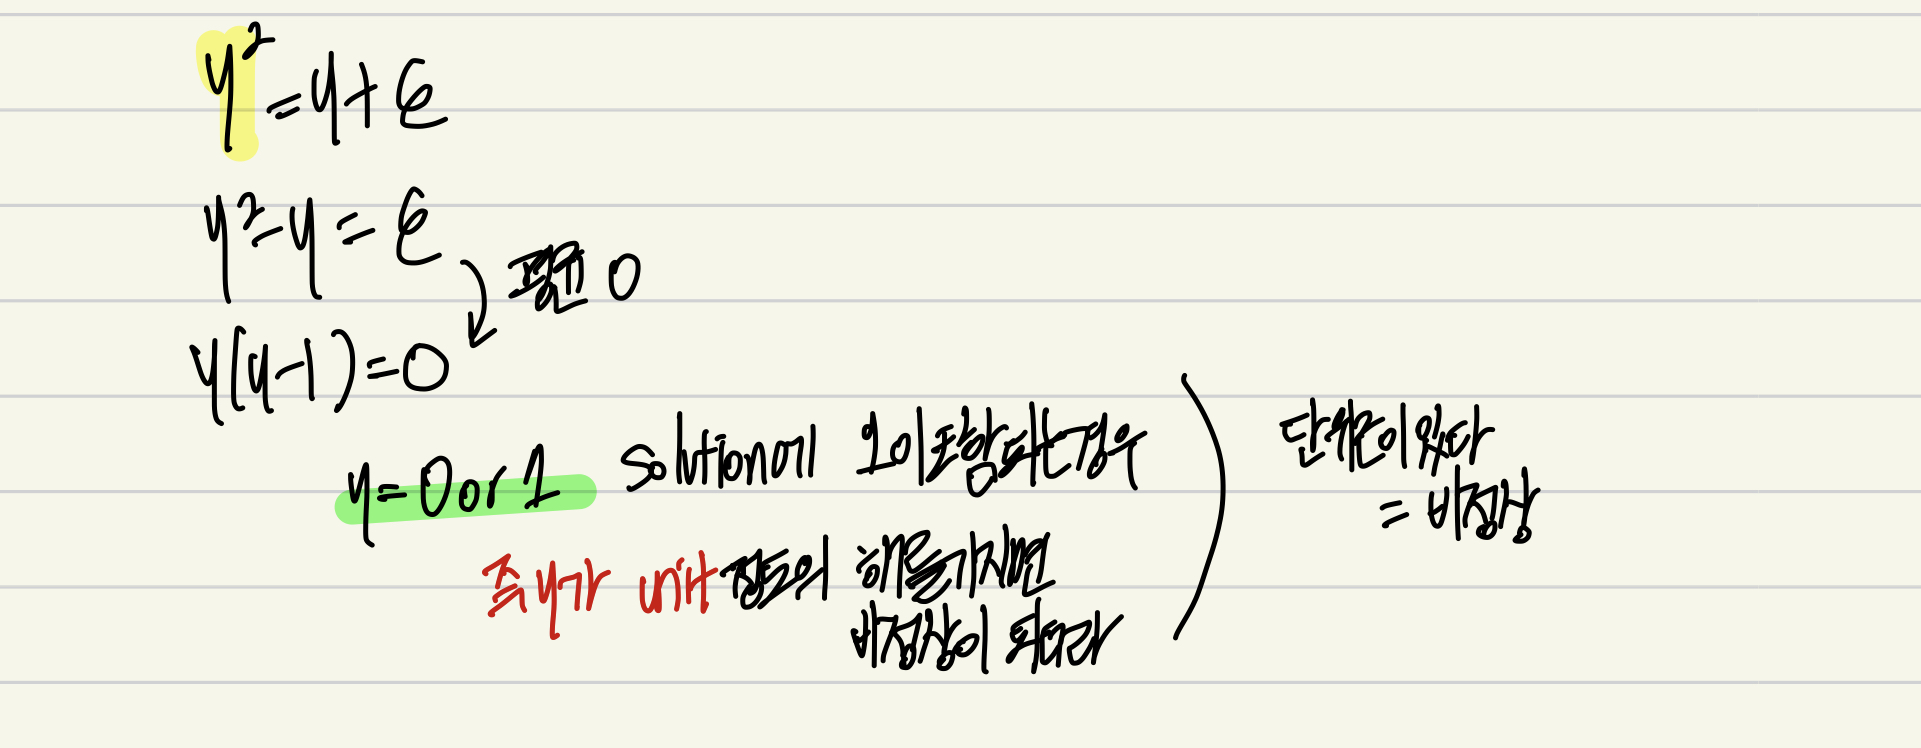 y² = y + ε
y² - y = ε
평균 0
y(y-1) = 0
y = 0 or 1 solution에 1이 포함되는 경우
즉 y가 unit 정도의 해를 가지면
비정상이 되더라
단위근이 있다
= 비정상